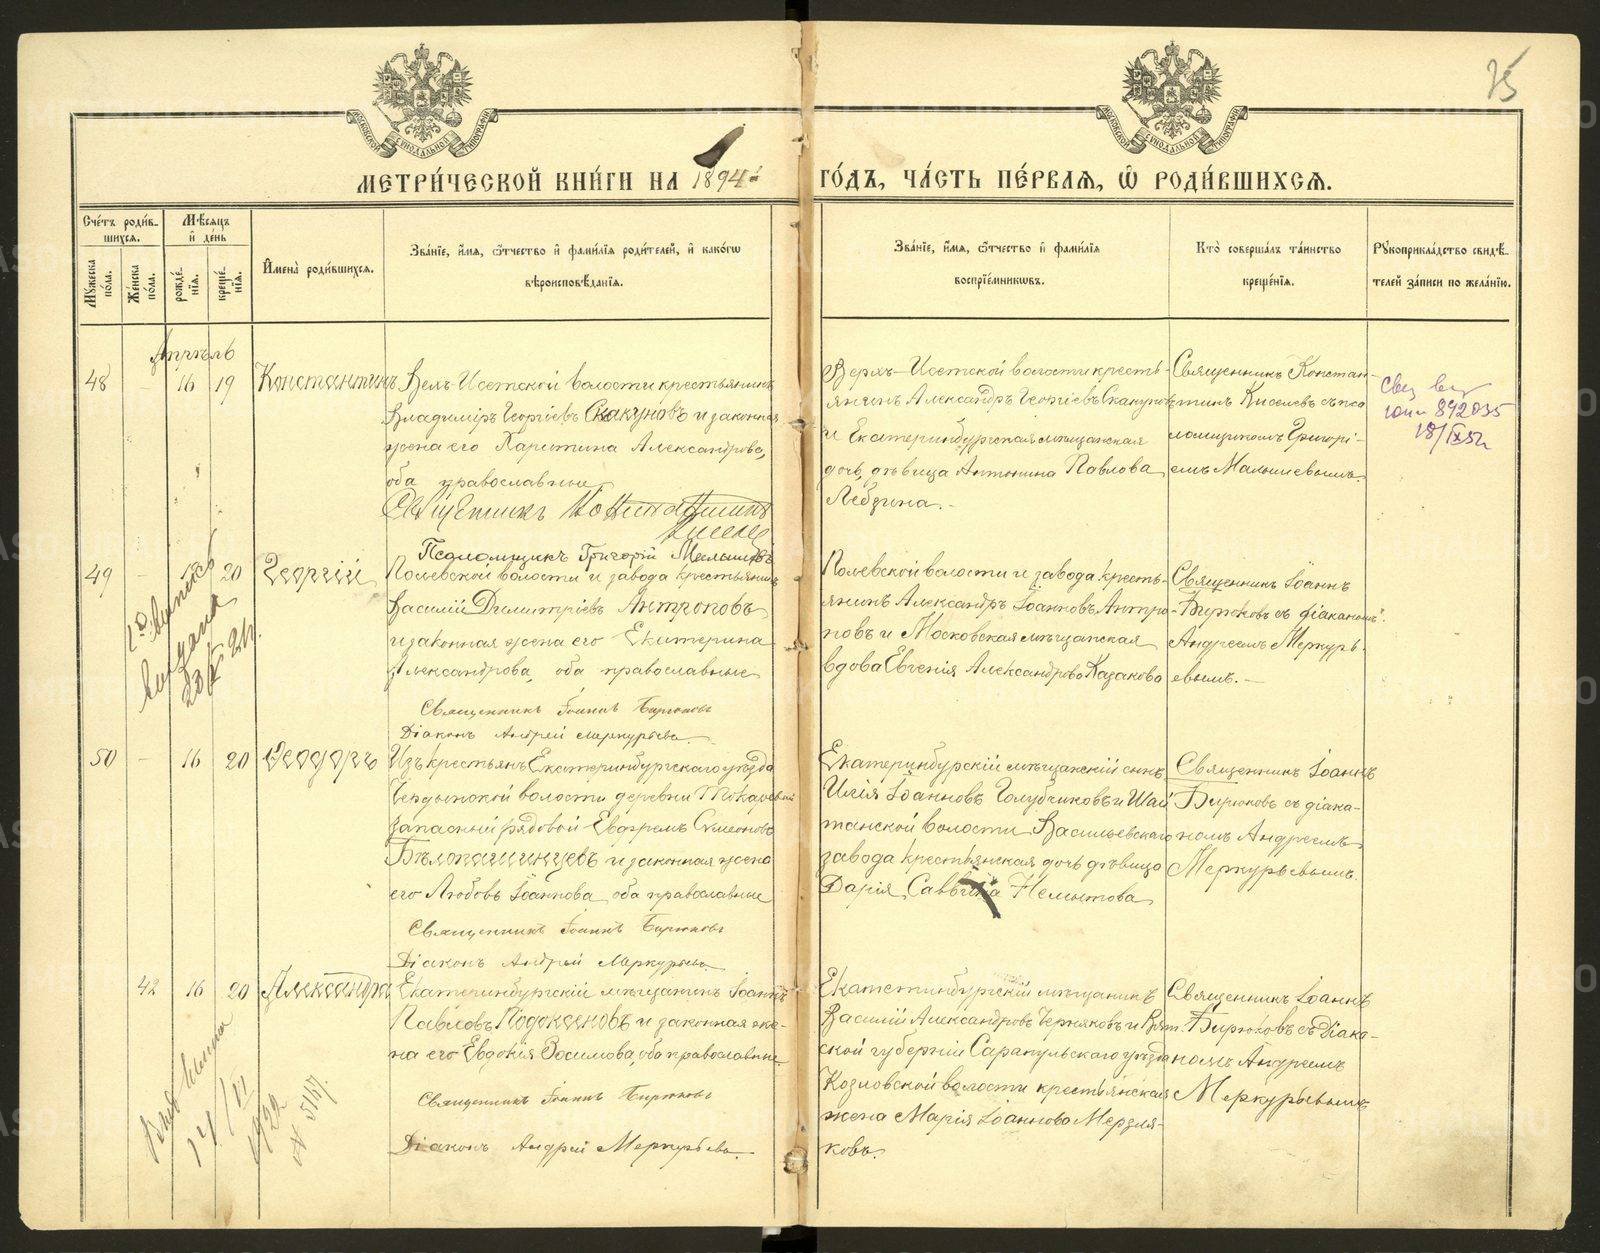 75
МЕТРИ́ЧЕСКОЙ КНИ́ГИ НА 1894й
ГО́ДЪ, ЧА́СТЬ ПЕ́РВАѦ, Ѡ҆ РОДИ́ВШИХСѦ.
Сче́тъ роди́в-
шихся.
Мѣ́сяцъ
и҆ де́нь
Мꙋ́жеска
по́ла.
Же́нска
по́ла.
рожде́-
нїя.
креще́-
нїя.
И҆мена̀ роди́вшихся.
Зва́нїе, и҆́мя, ѻ҆́тчество и҆ фами́лїя роди́телей, и҆ како́гѡ
вѣроисповѣ́данїя.
Зва́нїе, и҆́мя, ѻ҆́тчество и҆ фами́лїя
воспрїе́мникѡвъ.
Кто̀ соверша́лъ та́инство
креще́нїя.
Рꙋкоприкла́дство свидѣ́-
телей за́писи по жела́нїю.
Апрѣль
48 - 16 19 Константинъ
Верх-Исетской волости крестьянинъ
Владимiръ Георгiевъ Скакуновъ и законная
жена его Харитина Александрова,
оба православные
Священникъ Константинъ
Киселевъ
Псаломщикъ Григорiй Малышевъ
Верхъ-Исетской волости кресть-
янинъ Александръ Георгiевъ Скакуновъ
и Екатеринбургская мѣщанская
дочь, дѣвица Антонина Павлова
Лебзина.
Священникъ Констан-
тинъ Киселевъ съ пса
ломщикомъ Григорi-
емъ Малышевымъ.
892035
18/IX 52г
49 - 20 Георгiй
Полевской волости и завода крестьянинъ
Василiй Димитрiевъ Антроповъ
и законная жена его Екатерина
Александрова, оба православные
Священникъ Iоаннъ Бирюковъ
Дiаконъ Андрей Меркурьевъ
Полевской волости и завода кресть-
янинъ Александръ Iоанновъ Антро-
повъ и Московская мѣщанская
вдова Евгенiя Александрова Казакова
Священникъ Iоаннъ
Бирюковъ съ дiакономъ
Андреемъ Меркурь-
евымъ.
выдана
50 - 16 20 Ѳеодоръ
Изъ крестьянъ Екатеринбургскаго уѣзда
волости деревни Токаревой
запасный рядовой Ефремъ Сѵмеоновъ
Бѣлопашинцевъ и законная жена
его Любовь Iоаннова, оба православные
Священникъ Iоаннъ Бирюковъ
Дiаконъ Андрей Меркурьевъ
Екатеринбургскiй мѣщанскiй сынъ
Илiя Iоанновъ Голубчиковъ и Шай
танской волости, Васильевскаго
завода крестьянская дочь дѣвица
Дарiя Саввина Немытова
Священникъ Iоаннъ
Бирюковъ съ дiако-
номъ Андреемъ
Меркурьевымъ.
42 16 20 Александра
Екатеринбургскiй мѣщанинъ Iоаннъ
Павловъ Подоксеновъ и законная же-
на его Евдокiя Зосимова, оба православные
Священникъ Iоаннъ Бирюковъ
Дiаконъ Андрей Меркурьевъ.
Екатеринбургскiй мѣщанинъ
Василiй Александровъ Черняковъ и Вят-
ской губернiи Сарапульскаго уѣзда
Козловской волости крестьянская
жена Марiя Iоаннова Мерзля-
кова.
Священникъ Iоаннъ
Бирюковъ съ Дiако-
номъ Андреемъ
Меркурьевымъ
14/VI
1922
№ 5147.